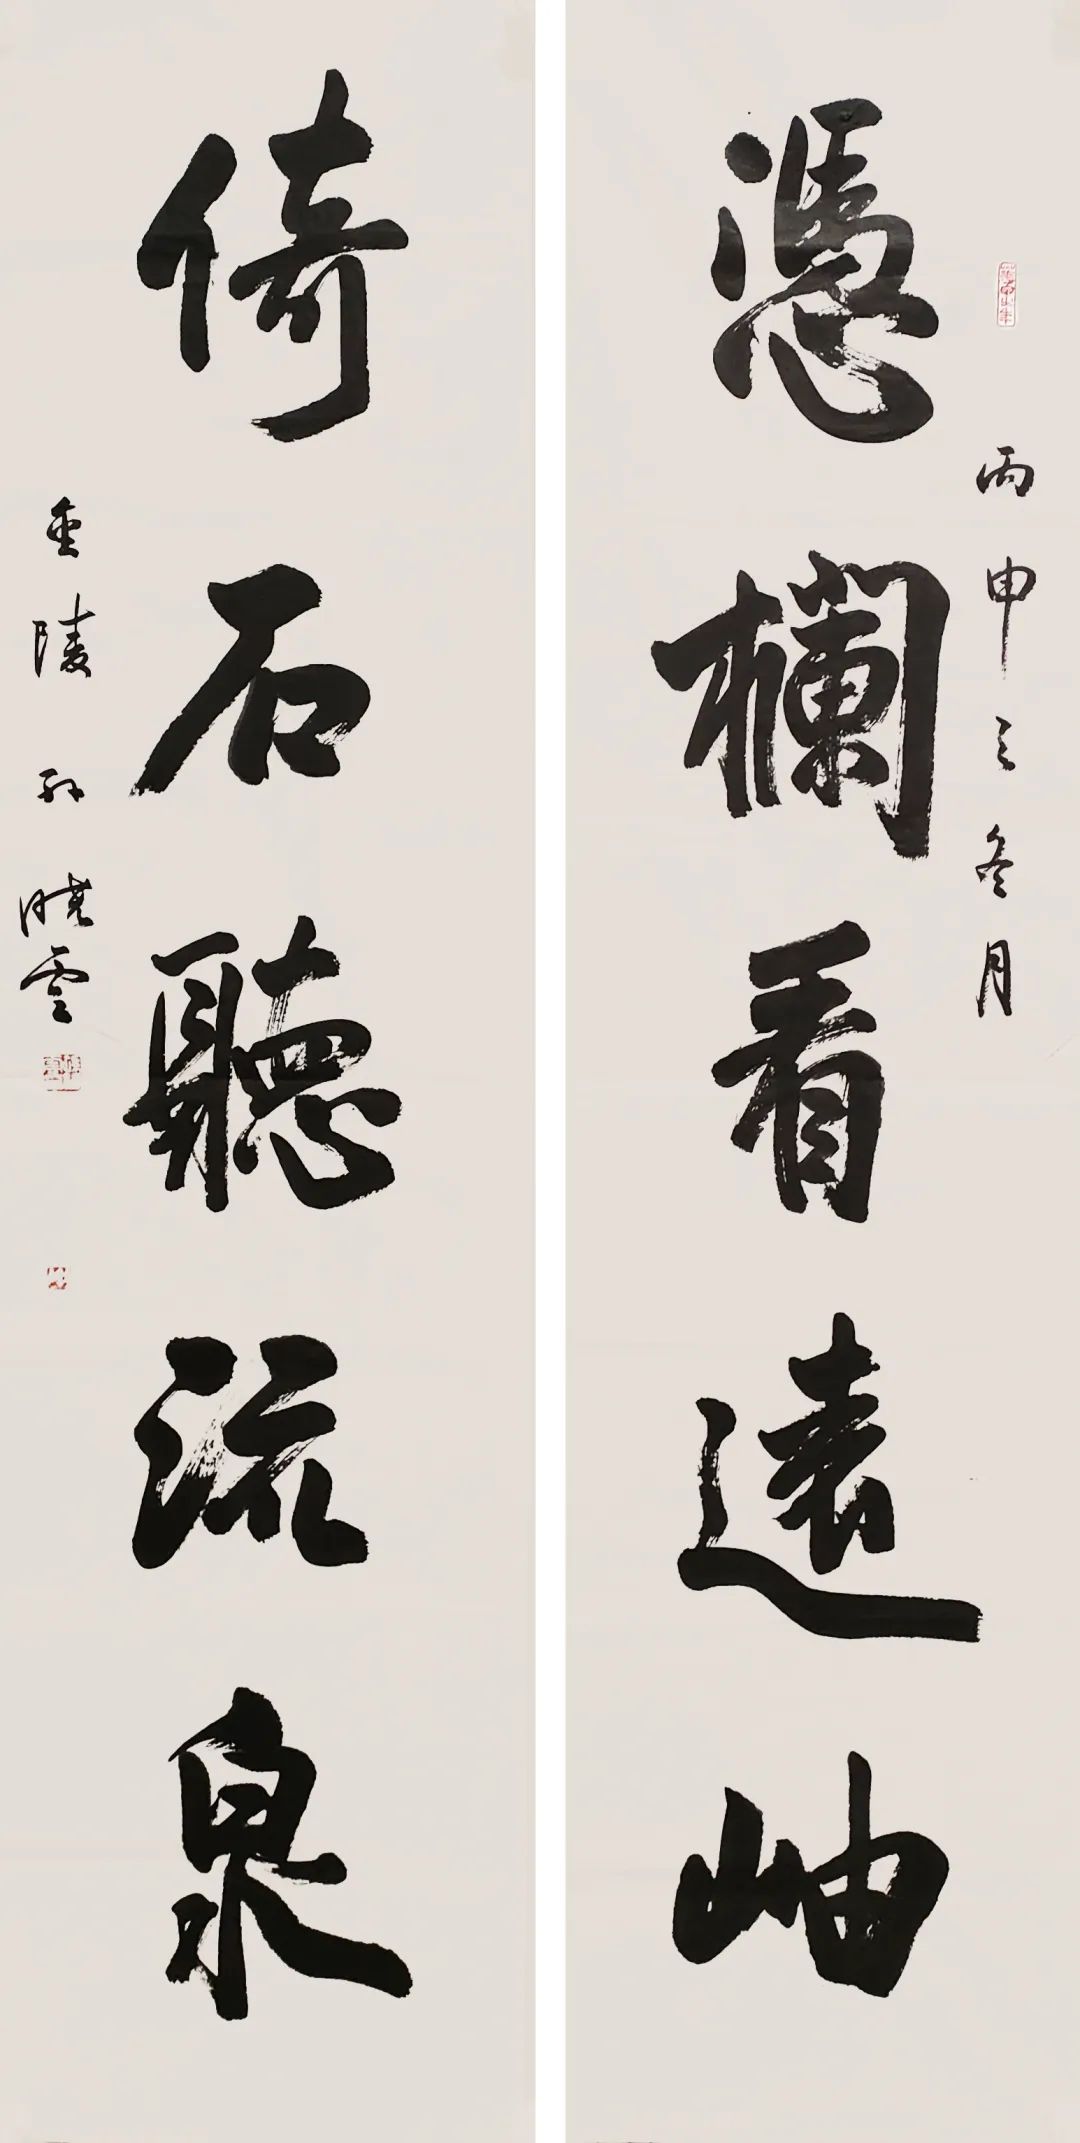 憑欄看遠岫
丙申之冬月
倚石聽流泉
金陵孙曉雲